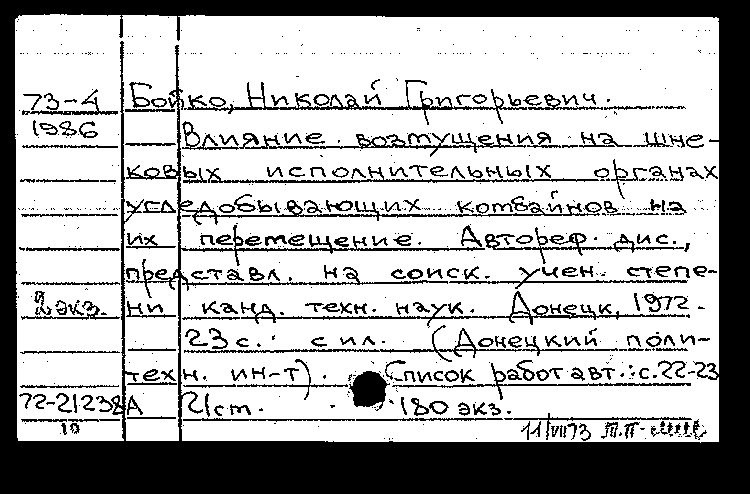 73-4 Бойко, Николай Григорьевич.
1986 Влияние возмущения на шне-
ковых исполнительных органах
угледобывающих комбайнов на
их перемещение. Автореф. дис.,
представл. на соиск. учен. степе-
2 экз. ни канд. техн. наук. Донецк, 1972.
23 с. с ил. (Донецкий поли-
техн. ин-т). Список работ авт.: с. 22-23
72-21238А 21 ст. 180 экз.
10 11/VII 73 Т.П-